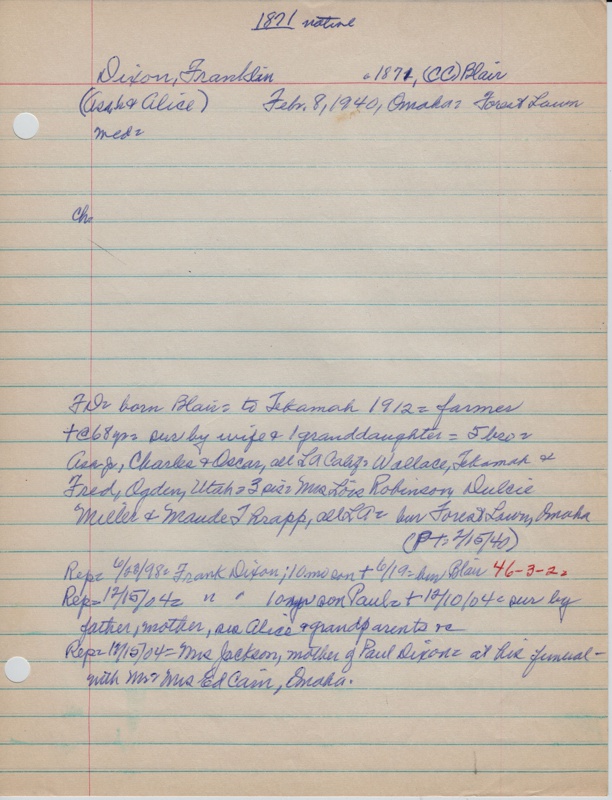 1871 native
Dixon, Franklin c 1871, (CC) Blair
(Asa & Alice) Febr. 8, 1940, Omaha = Forest Lawn
med=
Ch=
FD= born Blair = to Tekamah 1912 = farmer
+ c 68 yrs = sur by wife & 1 granddaughter = 5 bro =
Asa Jr, Charles & Oscar, all LA Calif = Wallace, Tekamah &
Fred, Ogden, Utah = 3 sis = Mrs Lois Robinson, Dulcie
Miller & Maude Thrapp, all LA = bur Forest Lawn, Omaha
(PT= 2/15/40)
Rep= 6/28/98 = Frank Dixon; 10 mo son + 6/19 = bur Blair 46-3-2=
Rep= 12/15/04 = " " 10 yr son Paul = + 12/10/04 = sur by
father, mother, sis Alice & grandparents rc
Rep= 12/15/04 = Mrs Jackson, mother of Paul Dixon = at his funeral -
with Mr & Mrs Ed Cain, Omaha.